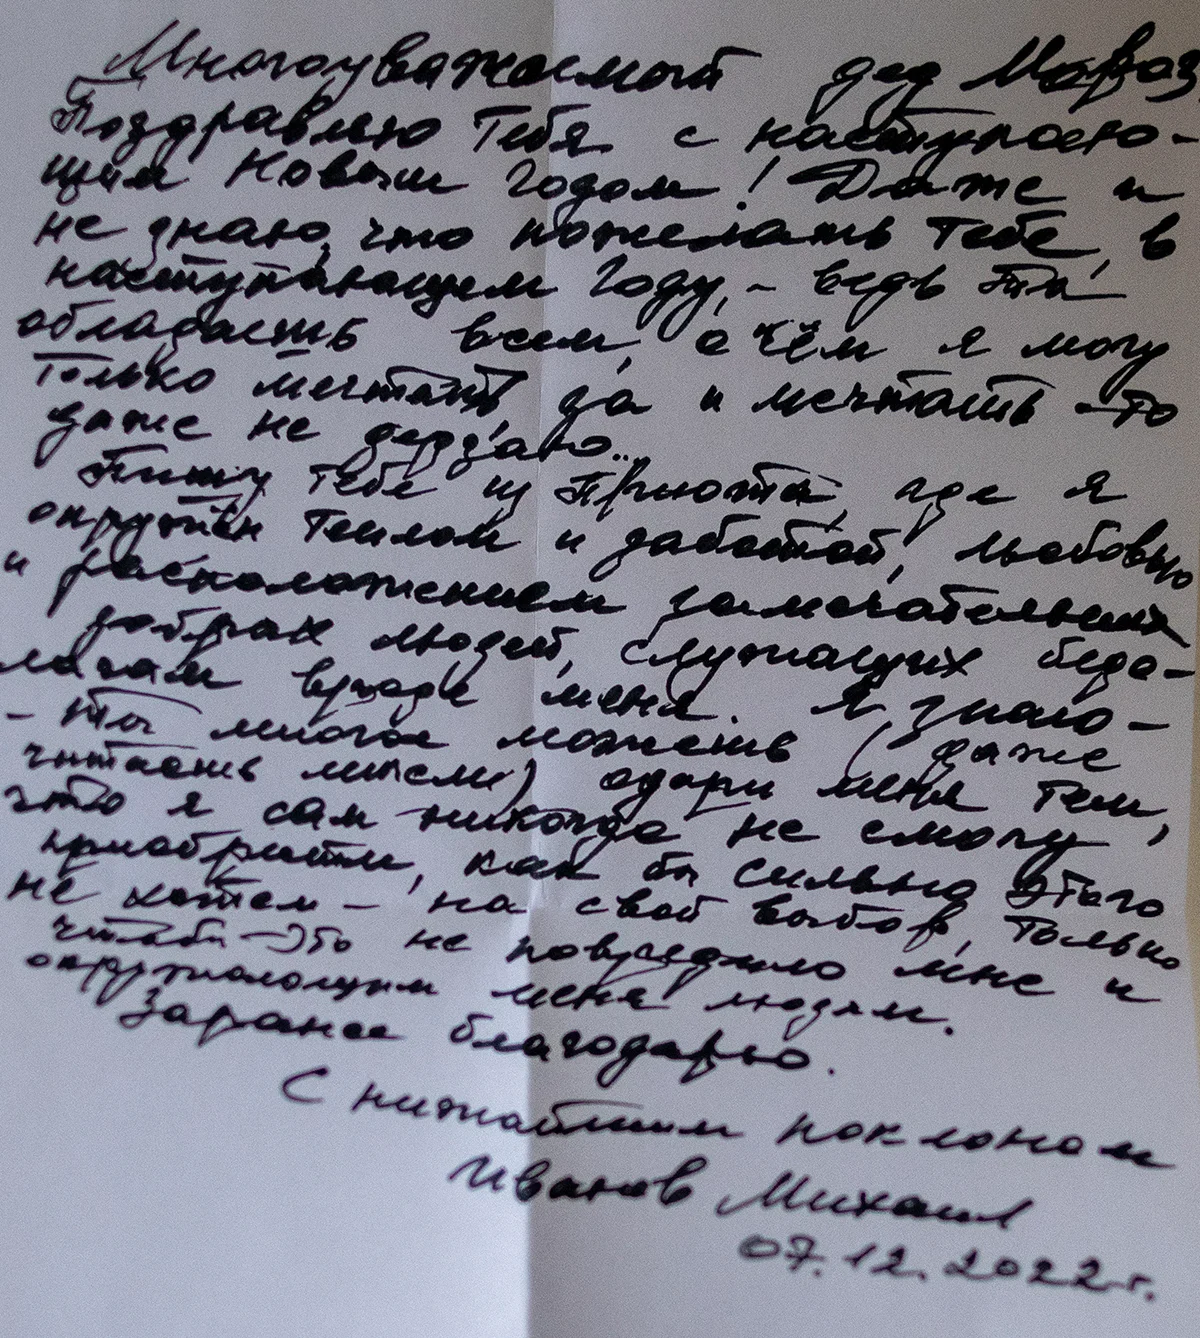 Многоуважаемый дед Мороз
Поздравляю Тебя с наступаю-
щим Новым Годом! Даже и
не знаю, что пожелать Тебе, в
наступающем Году, - ведь Ты
обладаешь всем, о чём я могу
только мечтать, да и мечтать-то
даже не дерзаю...
Пишу Тебе из Приюта, где я
окружён Теплом и заботой, любовью
и расположением замечательных
добрых людей, служащих беда-
лагам вроде меня. Я знаю-
- Ты многое можешь (даже
читаешь мысли) одари меня тем,
что я сам никогда не смогу
приобрести, как бы сильно этого
не хотел - на свой выбор, только
чтобы это не повредило мне и
окружающим меня людям.
Заранее благодарю.
С нижайшим поклоном
Иванов Михаил
07.12.2022 г.